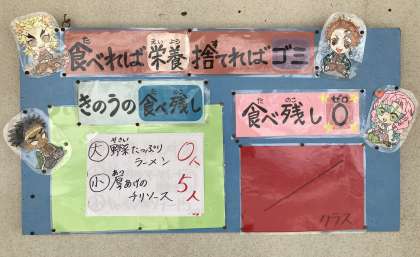 食べれば栄養捨てればゴミ
きのうの食べ残し
大 野菜たっぷり
ラーメン 0人
小 厚あげの
チリソース 5人
食べ残し0
クラス